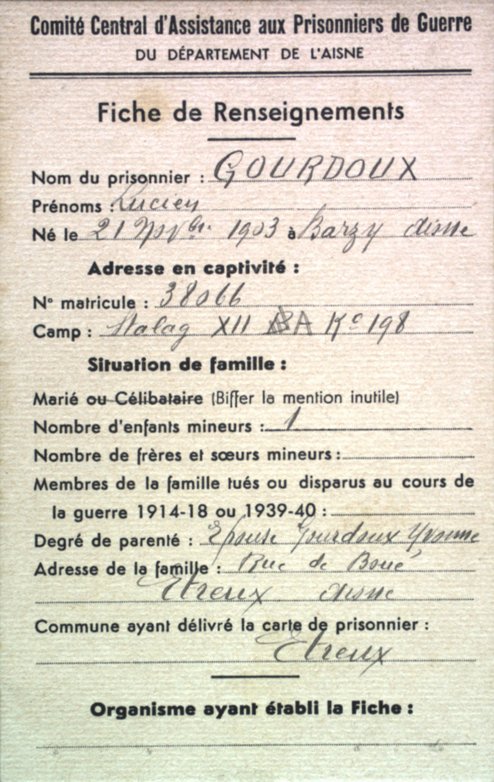 Comité Central d'Assistance aux Prisonniers de Guerre
DU DÉPARTEMENT DE L'AISNE
Fiche de Renseignements
Nom du prisonnier : GOURDOUX
Prénoms : Lucien
Né le 21 9bre 1903 à Barzy Aisne
Adresse en captivité :
N° matricule : 38066
Camp : Stalag XII A Kº 198
Situation de famille :
Marié ou Célibataire (Biffer la mention inutile)
Nombre d'enfants mineurs : 1
Nombre de frères et sœurs mineurs :
Membres de la famille tués ou disparus au cours de
la guerre 1914-18 ou 1939-40 :
Degré de parenté : Epouse Gourdoux Yvonne
Adresse de la famille : Rue de Boué
Etreux Aisne
Commune ayant délivré la carte de prisonnier :
Etreux
Organisme ayant établi la Fiche :